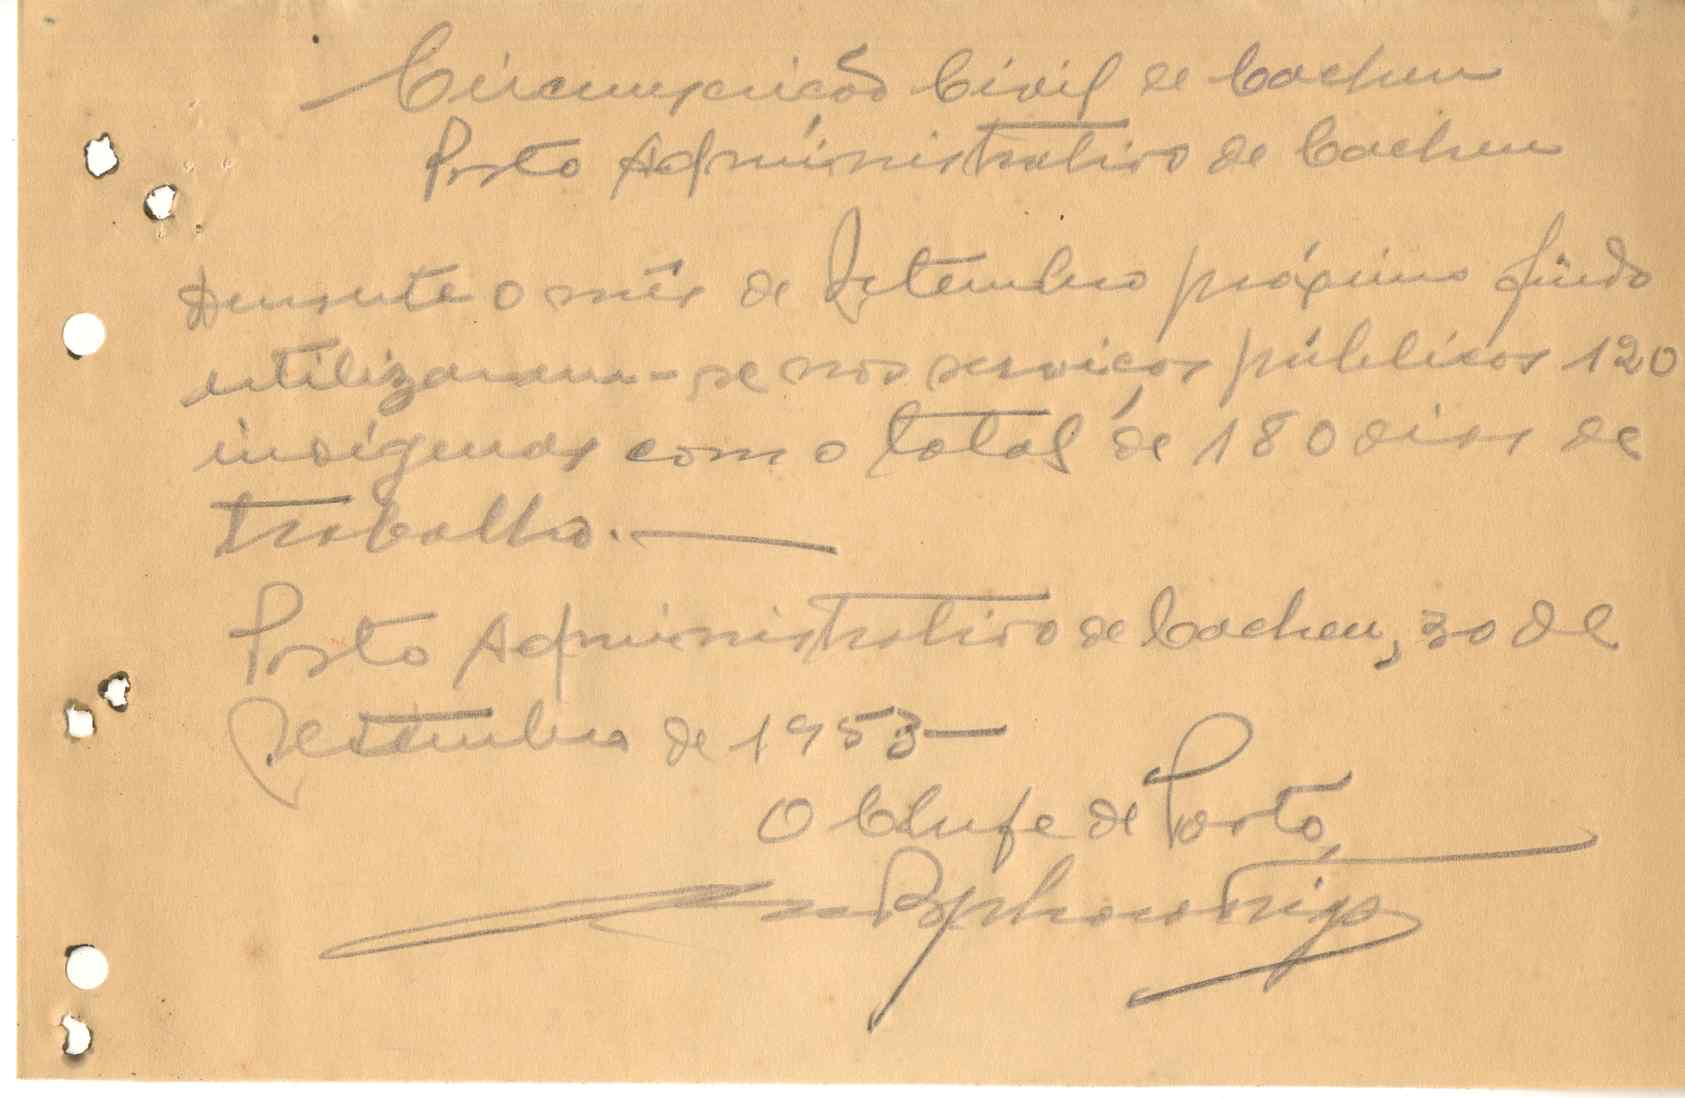 Circunscrição Civil de Cacheu
Posto Administrativo de Cacheu
Durante o mês de Setembro próximo findo
utilizaram-se nos serviços públicos 120
indígenas com o total de 180 dias de
trabalho.—
Posto Administrativo de Cacheu, 30 de
Setembro de 1953—
O Chefe de Posto,